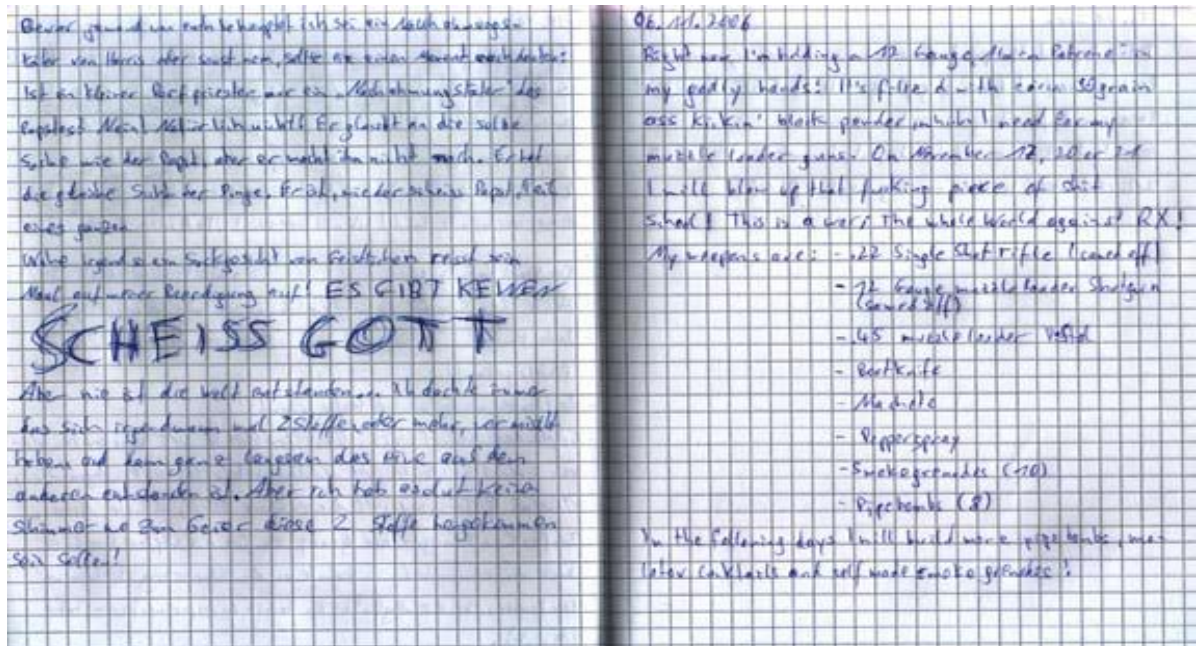 Bevor jemand von euch behauptet ich sei ein Nachahmungs-
täter von Harris oder sonst wem, sollte er einen Moment nachdenken:
Ist ein kleiner Dorfpriester nur ein "Nachahmungstäter" des
Papstes? Nein! Natürlich nicht! Er glaubt an die selbe
Sache wie der Papst, aber er macht ihn nicht nach. Er hat
die gleiche Sicht der Dinge. Er ist, wie der scheiss Papst, Teil
eines ganzen
Wehe irgend so ein Sackgesicht von Geistlichem reisst sein
Maul auf meiner Beerdigung auf! ES GIBT KEINEN
SCHEISS GOTT
Aber wie ist die Welt entstanden... Ich dachte immer
das sich irgendwann mal 2 Stoffe, oder mehr, vermischt
haben, und dann ganz langsam das eine auf dem
anderen entstanden ist. Aber ich hab absolut keinen
Schimmer wo zum Geier diese 2 Stoffe hergekommen
sein sollen!
06.11.2006
Right now I'm holding a 12 Gauge Patrone in
my godly hands! It's filled with 30grain
ass kickin' black powder, which I need for my
muzzle loader guns. On November 17, 20 or 21
I will blow up that fucking piece of shit
school! This is a war! The whole World against RX!
My weapons are: - .22 Single Shot rifle (sawed off)
- 12 Gauge muzzle loader Shotgun
(sawed off)
- .45 muzzle loader
- Bootknife
- Machete
- Pepperspray
- Smokegrenades (10)
- Pipebombs (8)
In the following days I will build more pipe bombs, mo-
lotov cocktails and self made smoke grenades!